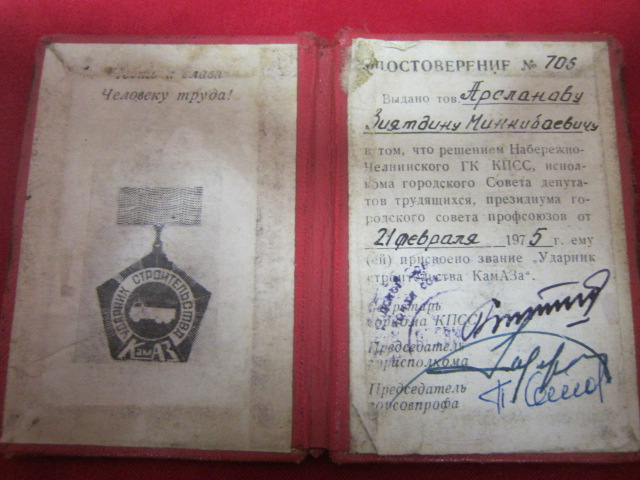 Честь и слава
Человеку труда!
УДАРНИК СТРОИТЕЛЬСТВА
КамАЗ
УДОСТОВЕРЕНИЕ № 705
Выдано тов. Арсланову
Зиятдину Миннибаевичу
в том, что решением Набережно-
Челнинского ГК КПСС, испол-
кома городского Совета депута-
тов трудящихся, президиума го-
родского совета профсоюзов от
21 февраля 1975 г. ему
(ей) присвоено звание „Ударник
строительства КамАЗа".
Секретарь
горкома КПСС
Председатель
горисполкома
Председатель
горсовпрофа